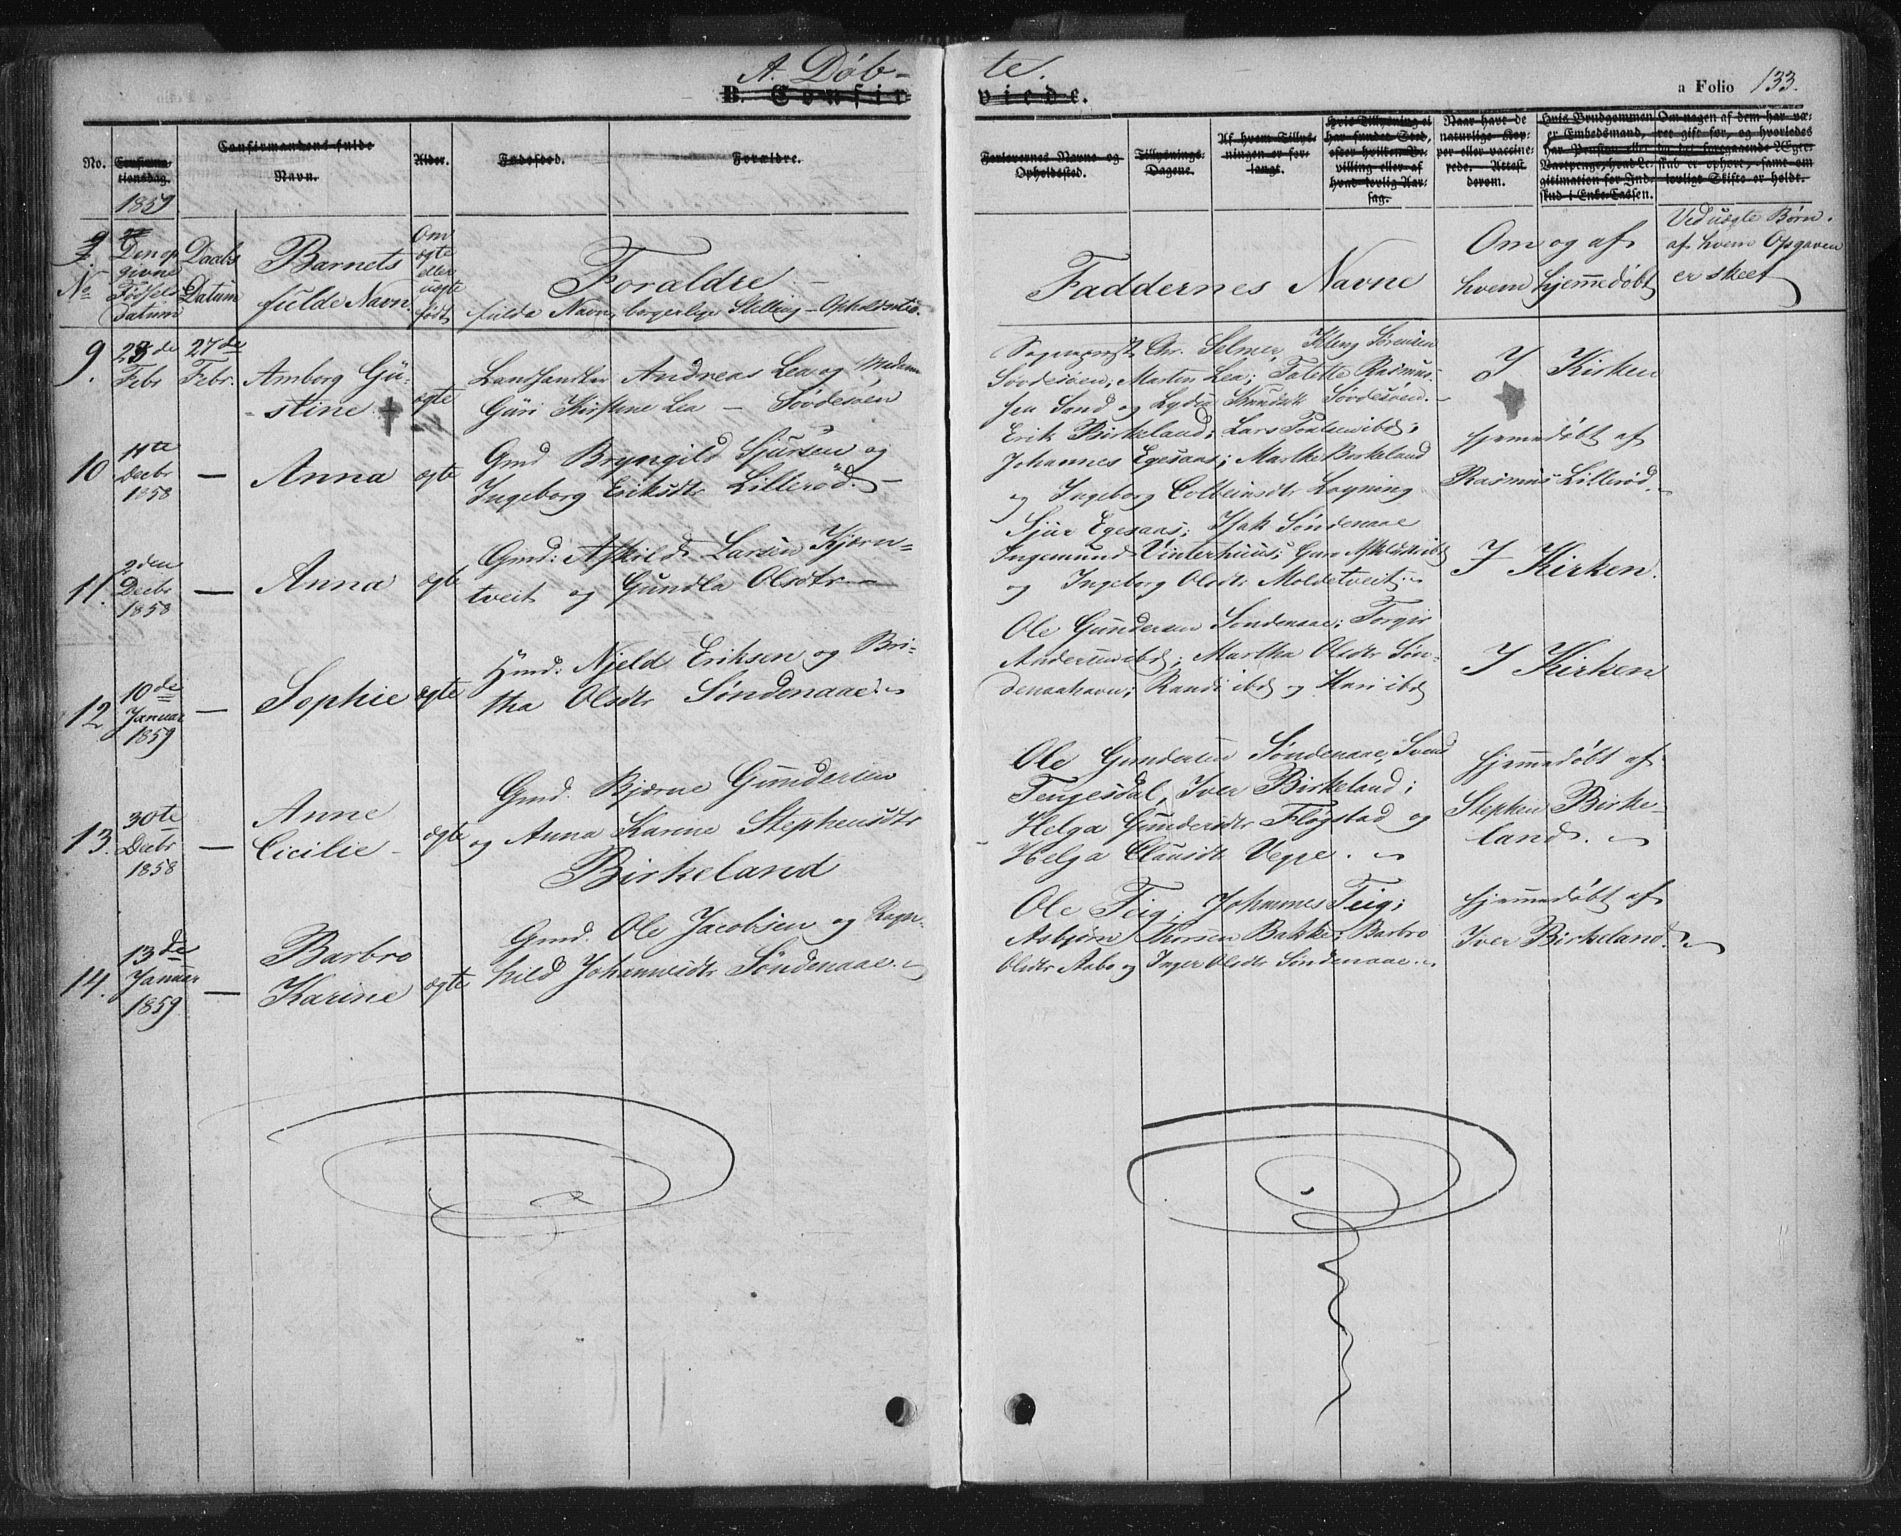 A. Døb-
te.
B. Confir
viede.
a Folio 133.
No.
Confirma-
tionsdag.
Confirmandens fulde
Navn.
Alder.
Fødested.
Forældre.
Forlovernes Navne og
Opholdssted.
Tillysnings-
Dagene.
Af hvem Tillys-
ningen er for-
langt.
Naar havt de
naturlige Kop-
per eller vaccine-
rede. Attest
derom.
1859
No
Den op
givne
Fødsels
datum
Daabs
Datum
Barnets
fulde Navn.
Om
ægte
eller
uægte
født
Forældre
fulde Navn, borgerlige Stilling - Opholdssted.
Faddernes Navne
Om og af
hvem hjemmedøbt
Ved uægte Børn.
af hvem Opgaven
er skeet
9.
23de
Febr
27de
Febr.
Amborg Gu-
stine †
ægte
Landhandler Andreas Lea og Madame
Guri Kirstene Lea - Sövdesöen
Chr. Selmer, Kleng Sörensen
Sövdesöen, Marten Lea; Talette Rasmus-
sen Sand og Lydia Sövdesöen.
I Kirken
10
11te
Decbr
1858
-
Anna
ægte
Gmd Bryngild Sjursen og
Ingeborg Eriksdtr Lilleröd. -
Erik Birkeland; Lars ibd;
Johannes Egesaas; Marthe Birkeland
og Ingeborg Løyning
hjemmedøbt af
Rasmus Lilleröd.
11.
2den
Decbr
1858
-
Anna
ægte
Gmd: Askild Larsen Kjærn-
tveit og Gundla Olsdtr -
Sjur Egesaas; Isak Söndenaae
Ingemund Vinterhuus; ibd
og Ingeborg Olsdtr Moldetveit.
I Kirken.
12
10de
Januar
1859
-
Sophie
ægte
Hmd: Njeld Eriksen og Bri-
tha Olsdtr Söndenaae.
Ole Gundersen Söndenaae; Torgir
Andersen ibd; Martha Olsdtr Sön-
denaahavn; Randi ibd og Kari ibd
I Kirken
13.
30te
Decbr
1858
-
Anne
Cicilie -
ægte
Gmd. Bjørne Gundersen
og Anna Karine Stephensdtr
Birkeland
Ole Gundersen Söndenaae, Svend
Tengesdal, Iver Birkeland;
Helga Gundersdtr Flogstad og
Helga Clausdtr Vegge.
hjemmedøbt af
Stephen Birke-
land.
14.
13de
Januar
1859
-
Barbro
Karine
ægte
Gmd. Ole Jacobsen og Ragn-
hild Johannesdtr Söndenaae.
Ole Teig; Johannes Teig;
Asbjørn Thorsen Bakke; Barbro
Olsdtr Aabø og Inger Olsdtr Söndenaae.
hjemmedøbt af
Iver Birkeland.